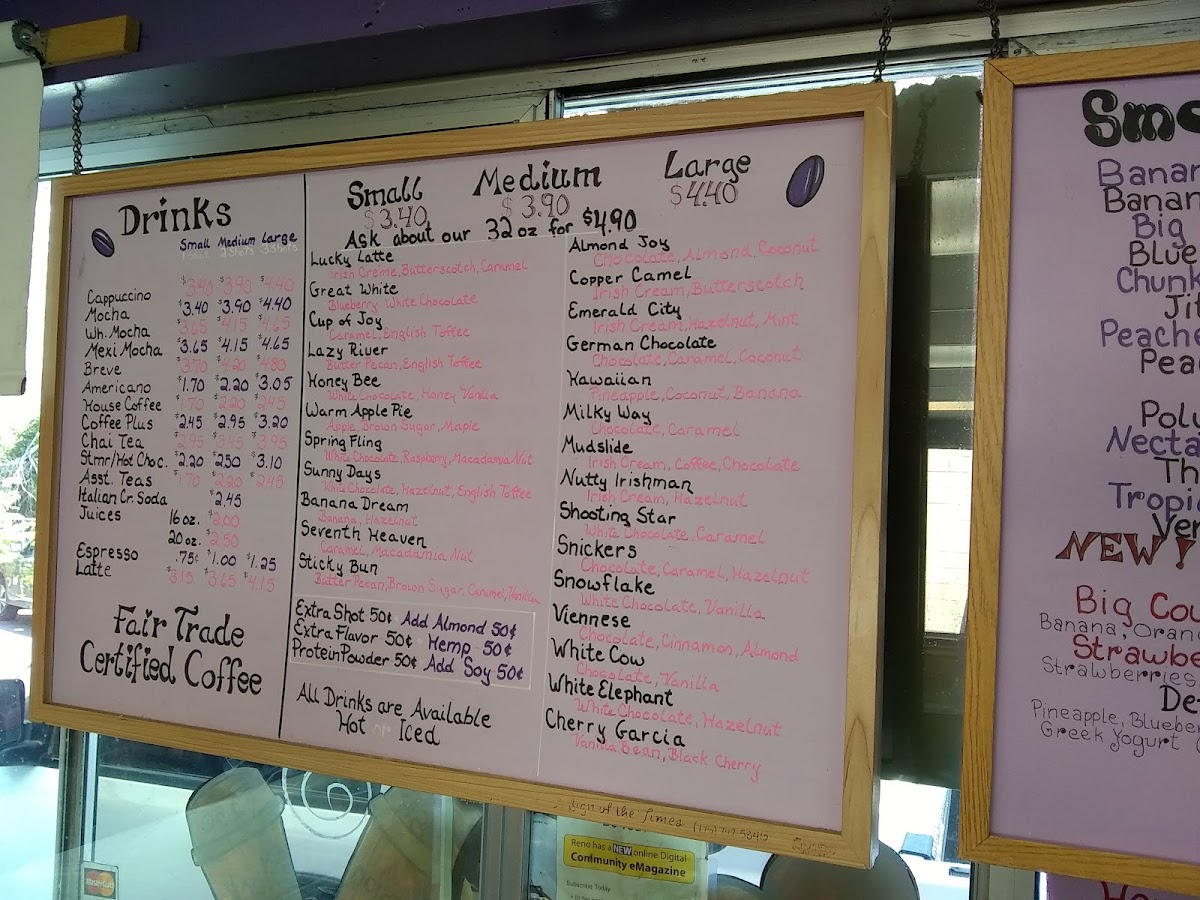 Drinks
Small Medium Large
Cappuccino $3.40 $3.90 $4.40
Mocha $3.40 $3.90 $4.40
Wh. Mocha $3.65 $4.15 $4.65
Mexi Mocha $3.65 $4.15 $4.65
Breve $3.70 $4.20 $4.80
Americano $1.70 $2.20 $3.05
House Coffee $1.70 $2.20 $2.45
Coffee Plus $2.45 $2.95 $3.20
Chai Tea $2.95 $3.45 $3.95
Stmr/Hot Choc. $2.20 $2.50 $3.10
Asst. Teas $1.70 $2.20 $2.45
Italian Cr. Soda $2.45
Juices 16 oz. $2.00
20 oz. $2.50
Espresso .75¢ $1.00 $1.25
Latte $3.15 $3.65 $4.15
Fair Trade
Certified Coffee
Small Medium Large
$3.40 $3.90 $4.40
Ask about our 32 oz for $4.90
Lucky Latte
Irish Creme, Butterscotch, Caramel
Great White
Blueberry, White Chocolate
Cup of Joy
Caramel, English Toffee
Lazy River
Butter Pecan, English Toffee
Honey Bee
White Chocolate, Honey Vanilla
Warm Apple Pie
Apple, Brown Sugar, Maple
Spring Fling
White Chocolate, Raspberry, Macadamia Nut
Sunny Days
White Chocolate, Hazelnut, English Toffee
Banana Dream
Banana, Hazelnut
Seventh Heaven
Caramel, Macadamia Nut
Sticky Bun
Butter Pecan, Brown Sugar, Caramel, Vanilla
Extra Shot 50¢ Add Almond 50¢
Extra Flavor 50¢ Hemp 50¢
Protein Powder 50¢ Add Soy 50¢
All Drinks are Available
Hot or Iced
Almond Joy
Chocolate, Almond, Coconut
Copper Camel
Irish Cream, Butterscotch
Emerald City
Irish Cream, Hazelnut, Mint
German Chocolate
Chocolate, Caramel, Coconut
Hawaiian
Pineapple, Coconut, Banana
Milky Way
Chocolate, Caramel
Mudslide
Irish Cream, Coffee, Chocolate
Nutty Irishman
Irish Cream, Hazelnut
Shooting Star
White Chocolate, Caramel
Snickers
Chocolate, Caramel, Hazelnut
Snowflake
White Chocolate, Vanilla
Viennese
Chocolate, Cinnamon, Almond
White Cow
Chocolate, Vanilla
White Elephant
White Chocolate, Hazelnut
Cherry Garcia
Vanilla Bean, Black Cherry
Sign of the Times
Smo
Banan
Banan
Big
Blue
Chunk
Jit
Peache
Pea
Polu
Necta
Th
Tropic
Ver
NEW!
Big Cou
Banana, Oran
Strawbe
Strawberries,
De
Pineapple, Blueber
Greek Yogurt
Reno has a NEW online Digital
Community eMagazine
Subscribe Today
MasterCard